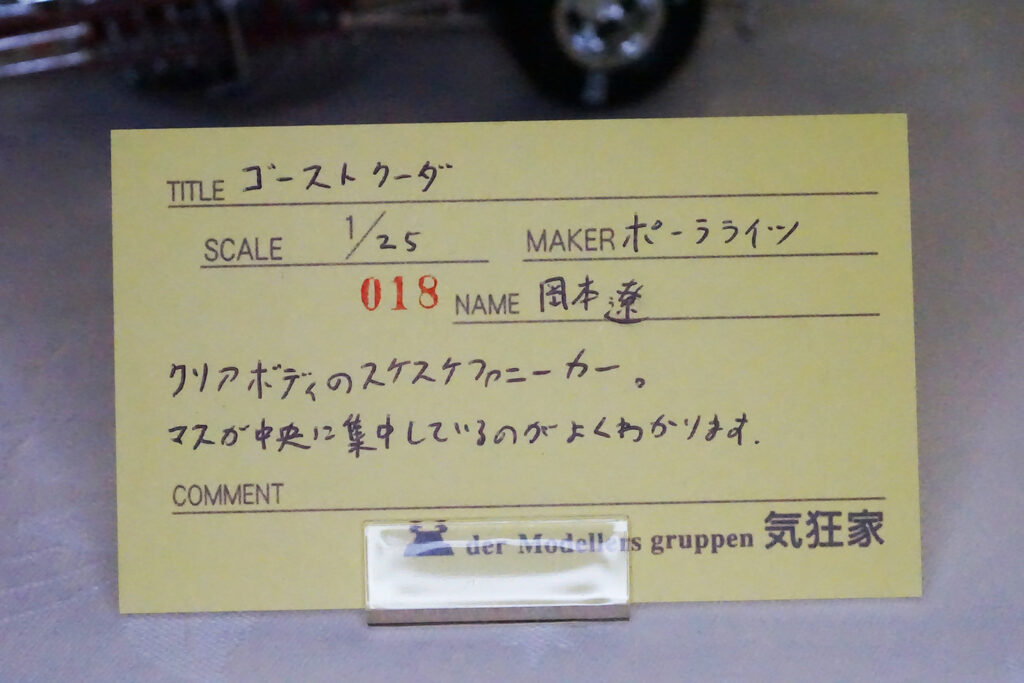 TITLE ゴーストクーダ
SCALE 1/25 MAKER ポーラライツ
018 NAME 岡本遼
クリアボディのスケスケファニーカー。
マスが中央に集中しているのがよくわかります.
COMMENT
der Modellers gruppen 気狂家